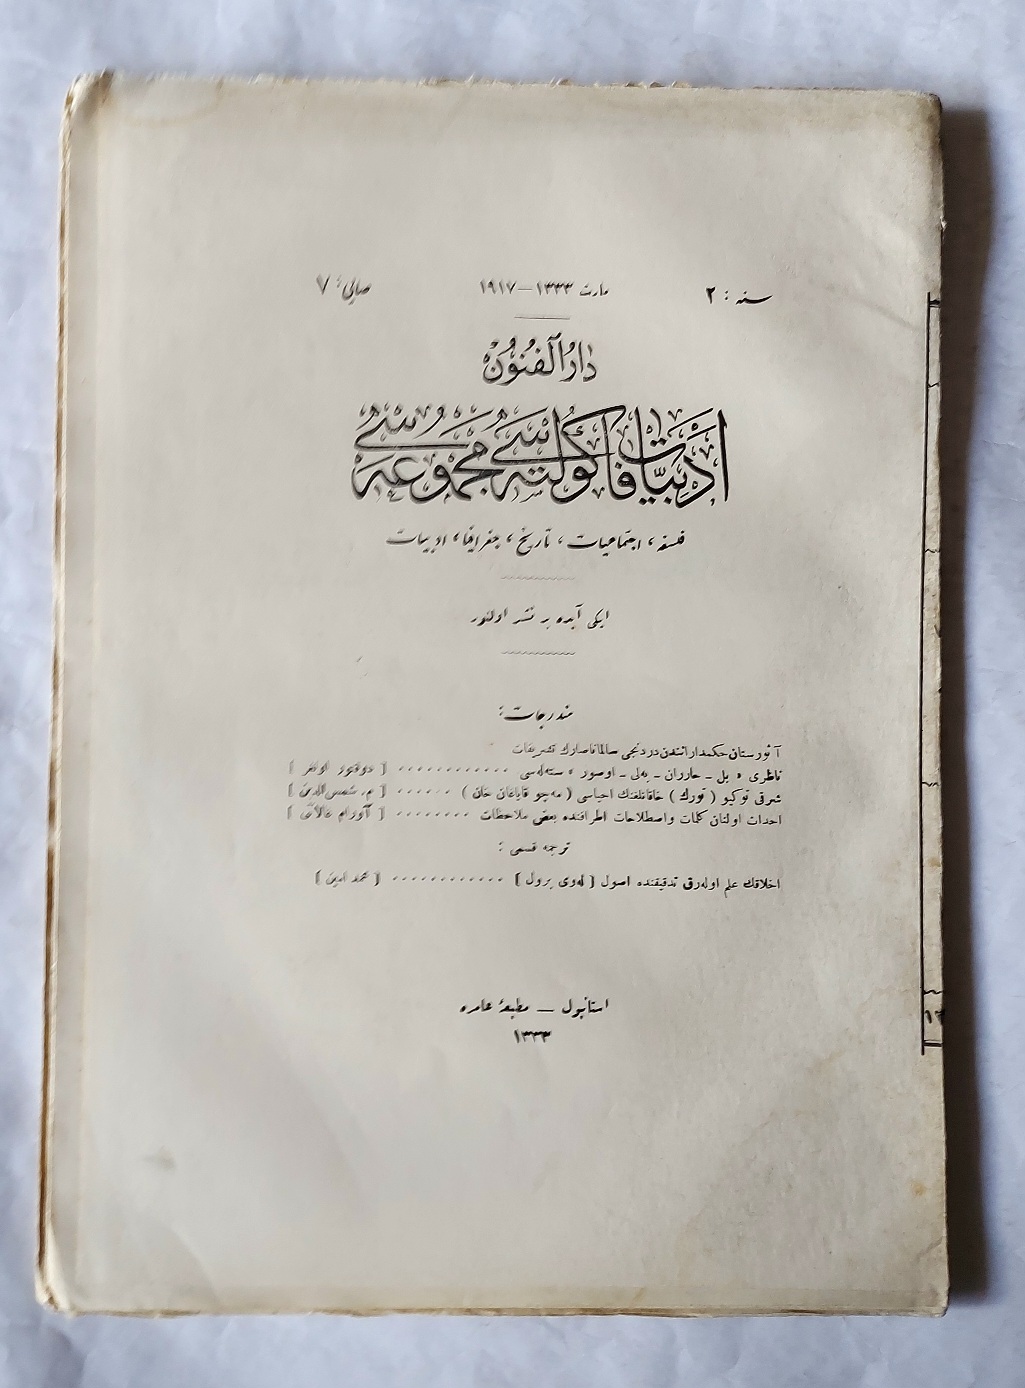 سنه : ٢
مارت ١٣٣٣ — ١٩١٧
صايى : ٧
دار الفنون
ادبيات فاكولته سى مجموعه سى
فلسفه ، اجتماعيات ، تاريخ ، جغرافيا ، ادبيات
ايكى آيده بر نشر اولنور
مندرجات :
آثورستان حكمدارانندن دردنجى سالماناصارك تشريفات
ناظرى « بل ـ حارران ـ بەلى ـ اوصور » ستەلەسى ............ [ دوقتور اونغر ]
شرقى توكيو ( تورك ) خاقانلغنك احياسى ( مەچو قاپاغان خان ) ...... [ م. شمس الدين ]
احداث اولنان كلمات واصطلاحات اطرافنده بعض ملاحظات ........ [ آورام غالانتى ]
ترجمه قسمى :
اخلاقك علم اولەرق تدقيقنده اصول [ لەوى برول ] ............ [ محمد امين ]
استانبول — مطبعهٔ عامره
١٣٣٣